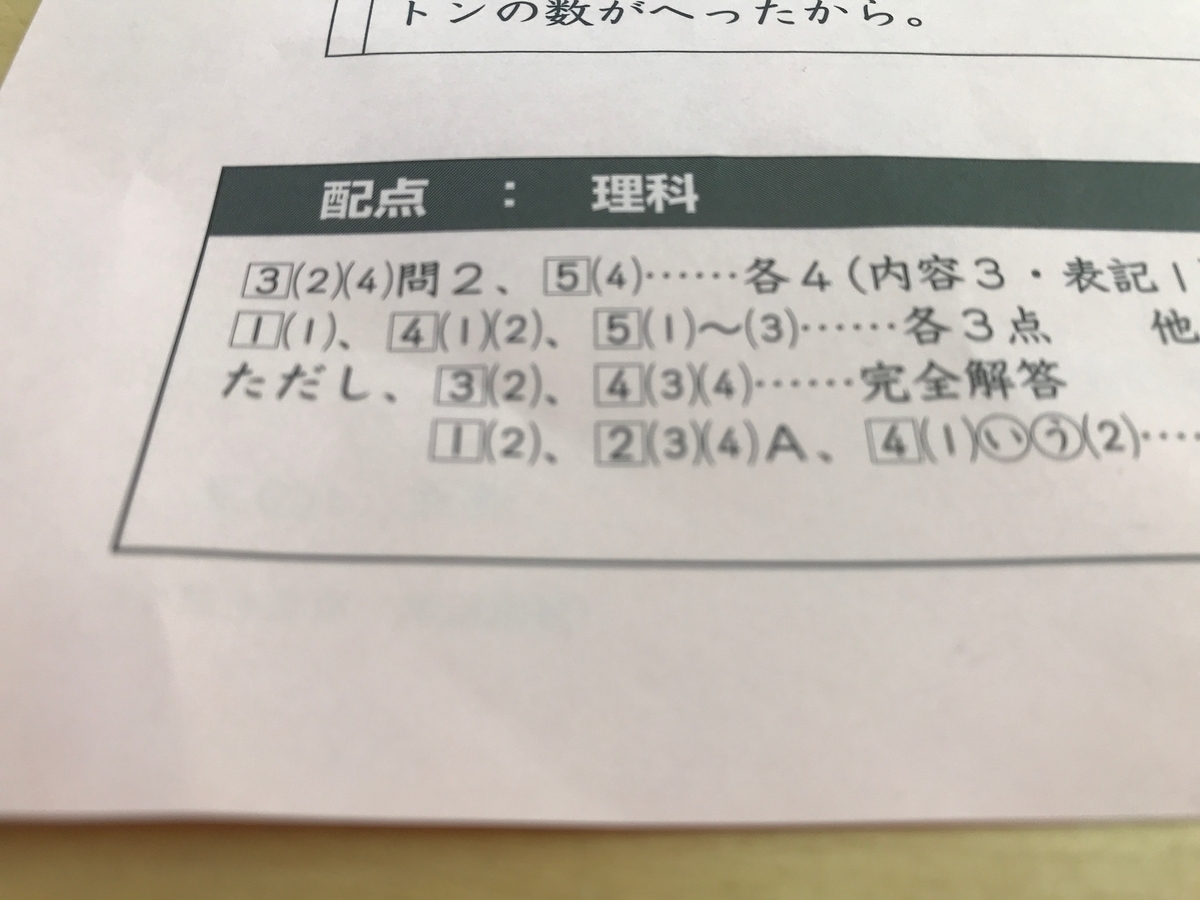 トンの数がへったから。
配点 : 理科
3(2)(4)問2、5(4)……各4(内容3・表記1
1(1)、4(1)(2)、5(1)～(3)……各3点 他
ただし、3(2)、4(3)(4)……完全解答
1(2)、2(3)(4)A、4(1)㋑㋒(2)……